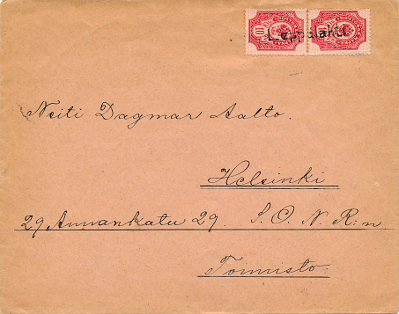 10 10
Leppälahti
Neiti Dagmar Aalto.
Helsinki
29 Annankatu 29. S. O. N. R:n
Toimisto.